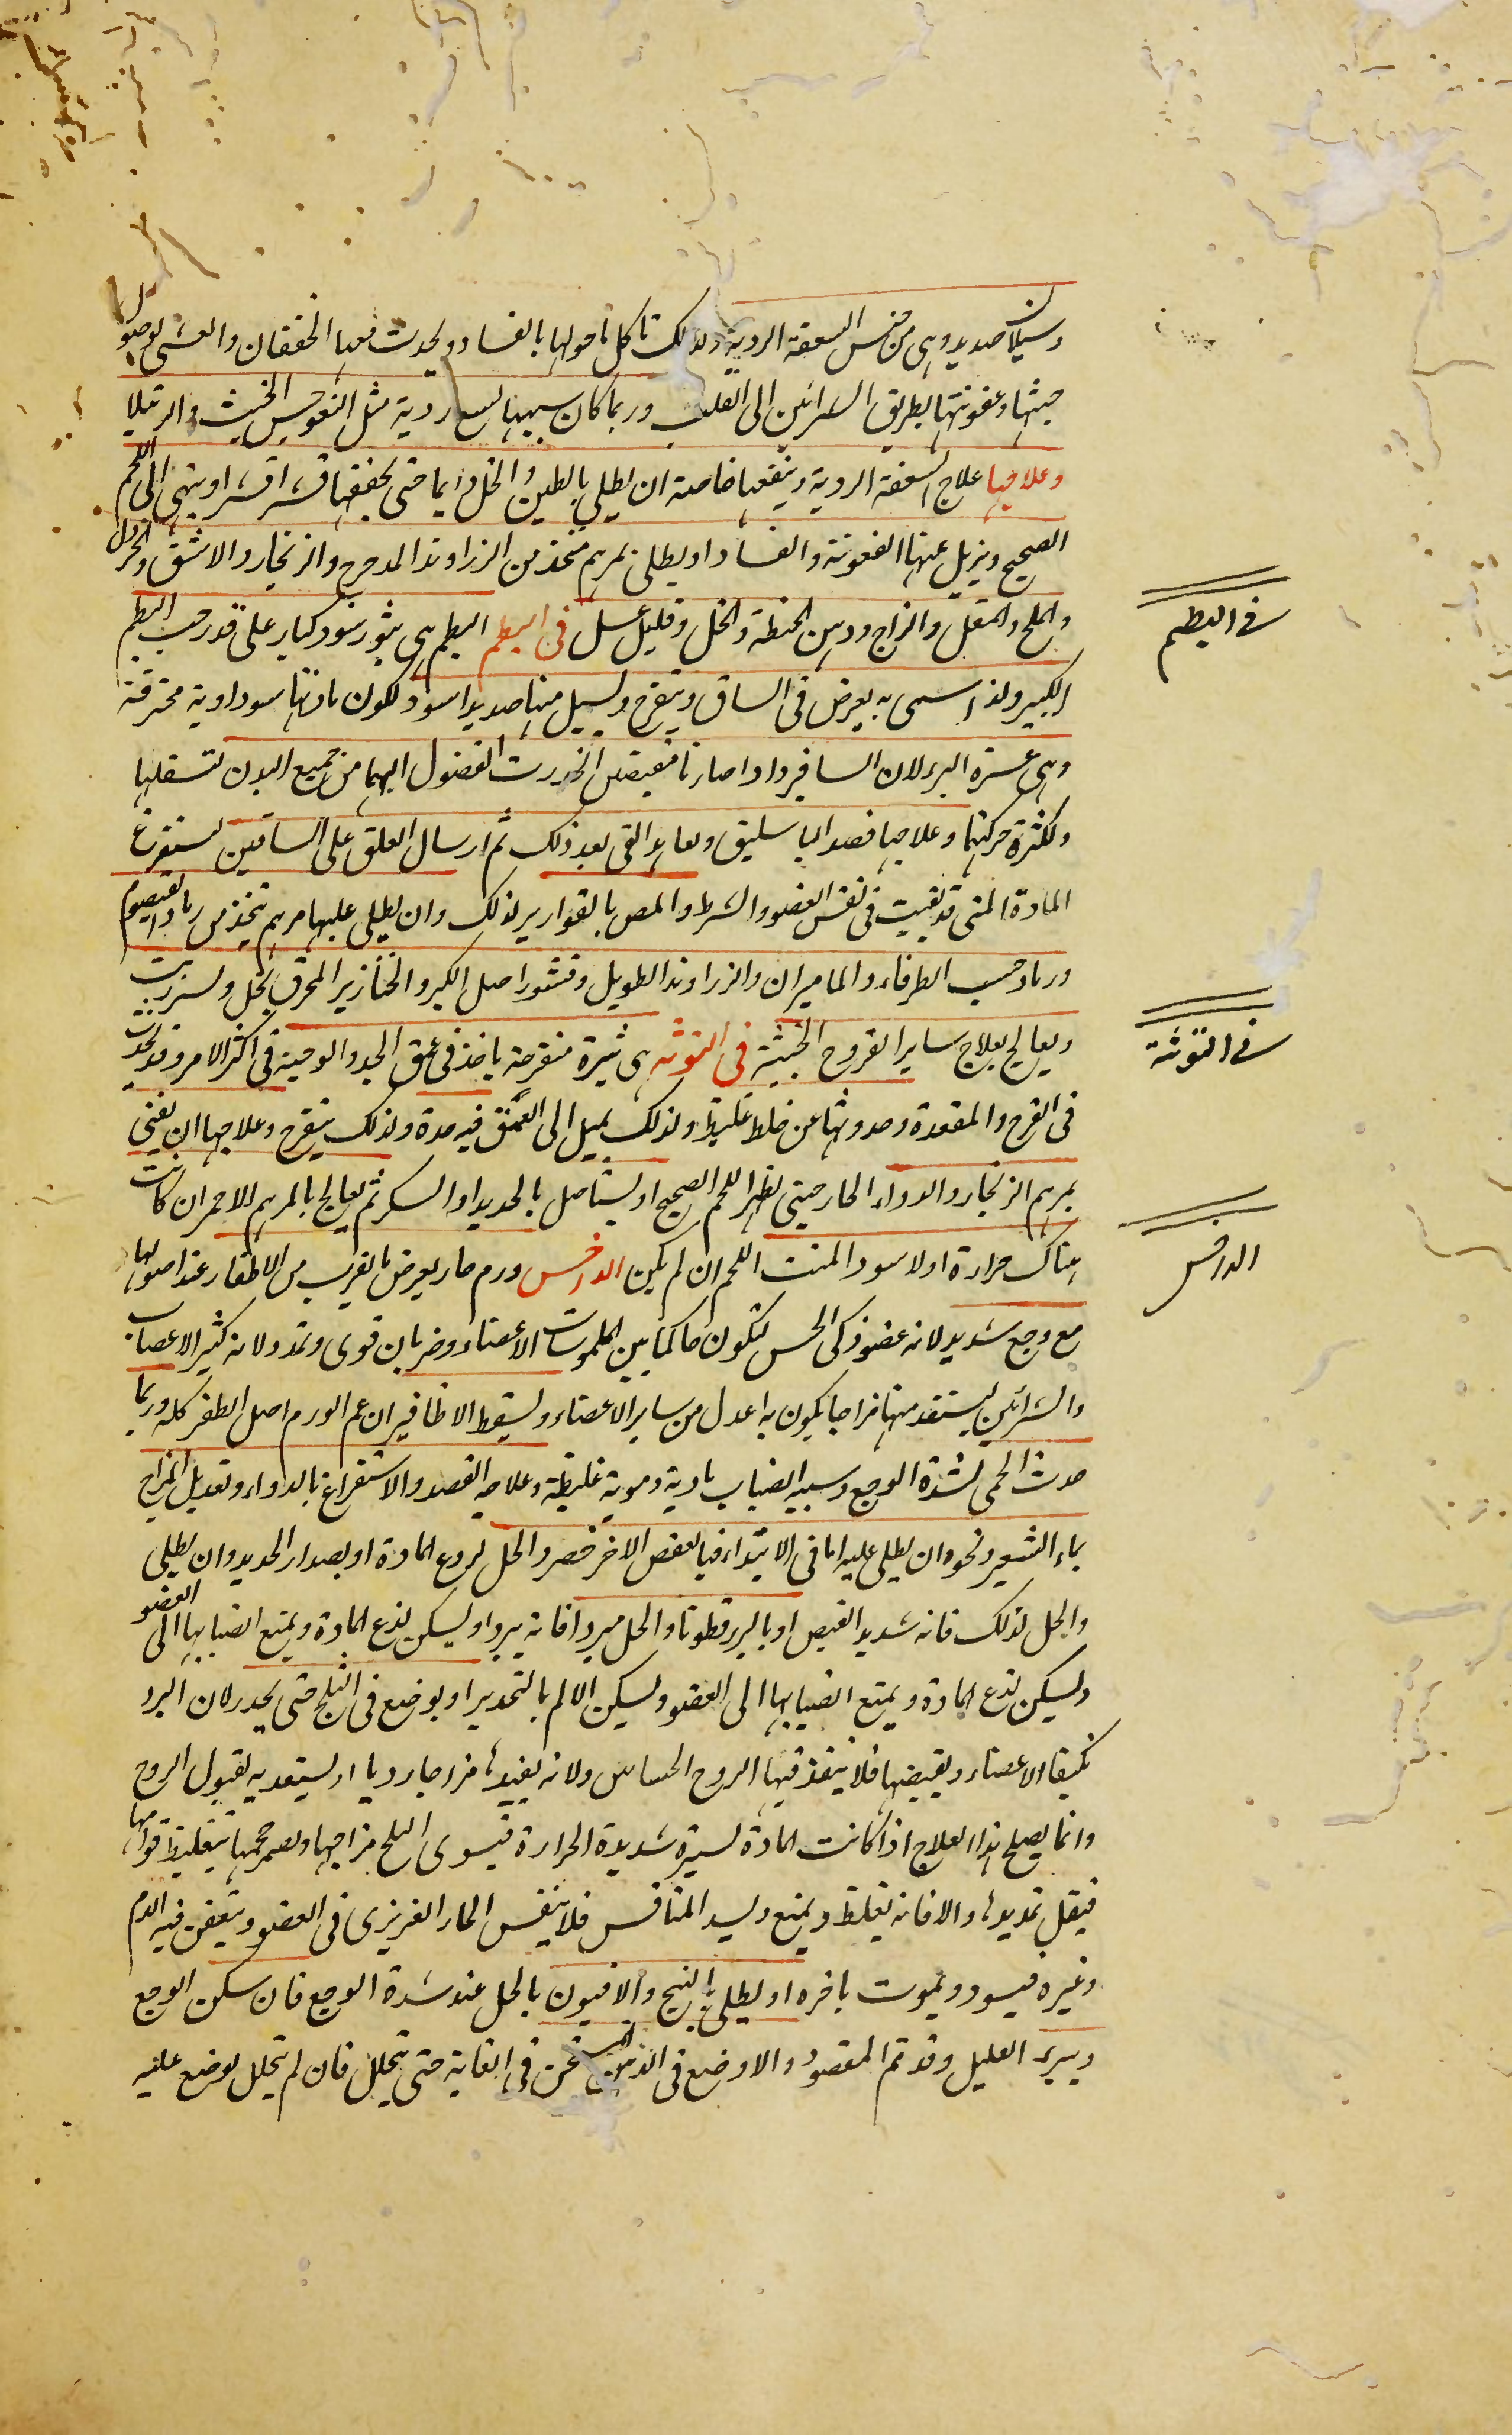 وسيلان صديد وهى من جنس السعفة الردية ولذلك تاكل ما حولها بالفساد ويحدث معها الخفقان والغشى لوصول
خبثها وعفونتها بطريق الشرائين الى القلب وربما كان سببها لسع ردية مثل النعوجس الخبيث والرتيلا
وعلاجها علاج السعفة الردية وينفعها خاصة ان يطلى بالطين والخل دايما حتى يجففها قشرا قشرا وينتهى الى اللحم
الصحيح ويزيل عنها العفونة والفساد او يطلى بمرهم متخذ من الزراوند المدحرج والزنجار والاشق والخردل
والملح والمقل والزاج ودهن الحنطة والخل وقليل عسل فى البطم البطم هى بثور سود كبار على قدر حب البطم
الكبير ولذا سمى به يعرض فى الساق ويتقرح ويسيل منها صديد اسود لكون مادتها سوداوية محترقة
وهى عسرة البرء لان السافير دادا صارتا مغيضين انحدرت الفضول اليهما من جميع البدن لتسفلها
ولكثرة حركتهما وعلاجها فصد الباسليق وتعاهد القى بعد ذلك ثم ارسال العلق على الساقين لتستفرغ
المادة التى قد بقيت فى نفس العضو والشرط والمص بالقوارير لذلك وان يطلى عليها مرهم يتخذ من رماد القيصوم
ورماد حب الطرفاء والماميران والزراوند الطويل وقشور اصل الكبر والخنازير المحرق بخل وسيرزيت
ويعالج بعلاج ساير القروح الخبيثة فى التوثه هى بثيرة متقرحة ياخذ فى عمق الجلد والوجنة فى اكثر الامر وقد يحدث
فى الفرج والمقعدة وحدوثها عن خلط غليظ ولذلك يميل الى العمق فيه حدة ولذلك يتقرح وعلاجها ان يفنى
بمرهم الزنجار والدواء الحار حتى يظهر اللحم الصحيح او يستاصل بالحديد او السكر ثم يعالج بالمرهم الاحمر ان كانت
هناك حرارة او لا سود المنبت اللحم ان لم يكن الداخس ورم حار يعرض بالقرب من الاظفار عند اصولها
مع وجع شديد لانه عضو ذكى الحس لتكون حاكما بين الملموسات الاعضاء وضربان قوى وتمدد لانه كثير الاعصاب
والشرائين ليستفد منها مزاجا يكون به اعدل من ساير الاعضاء ويسقط الاظافير ان عم الورم اصل الظفر كله وربما
حدث الحمى لشدة الوجع وسببه انصباب مادية دموية غليظة وعلاجه الفصد والاستفراغ بالدواء وتعديل المزاج
بماء الشعير ونحوه وان يطلى عليه اما فى الابتداء فبالعفص الاخضر والخل لردع المادة او بصدار الحديد وان يطلى
والخل لذلك فانه شديد القبض او بالبزر قطونا والخل مبردا فانه يبرد او ليسكن لذع المادة ويمنع انصبابها الى العضو
وليسكن لذع المادة ويمنع انصبابها الى العضو ويسكن الالم بالتخدير او يوضع فى الثلج حتى يخدر لان البرد
يكثف الاعضاء ويقبضها فلا ينفذ فيها الروح الحساس ولانه يفيدها مزاجا رديا لا يستعد به لقبول الروح
وانما يصلح هذا العلاج اذا كانت المادة يسيرة شديدة الحرارة فيسوى الثلج مزاجها ويصغر حجمها بتغليظ قوامها
فيقل تمديدها والا فانه يغلظ ويمنع ويسد المنافس فلا يتنفس الحار الغريزى فى العضو ويتعفن فيه الدم
وغيره فيسود ويموت باخره او يطلى بالبنج والافيون بالخل عند شدة الوجع فان سكن الوجع
ويبرء العليل وقد تم المقصود والا وضع فى الدهن المسخن فى الغاية حتى يتحلل فان لم يتحلل يوضع عليه
فى البطم
فى التوثة
الداخس